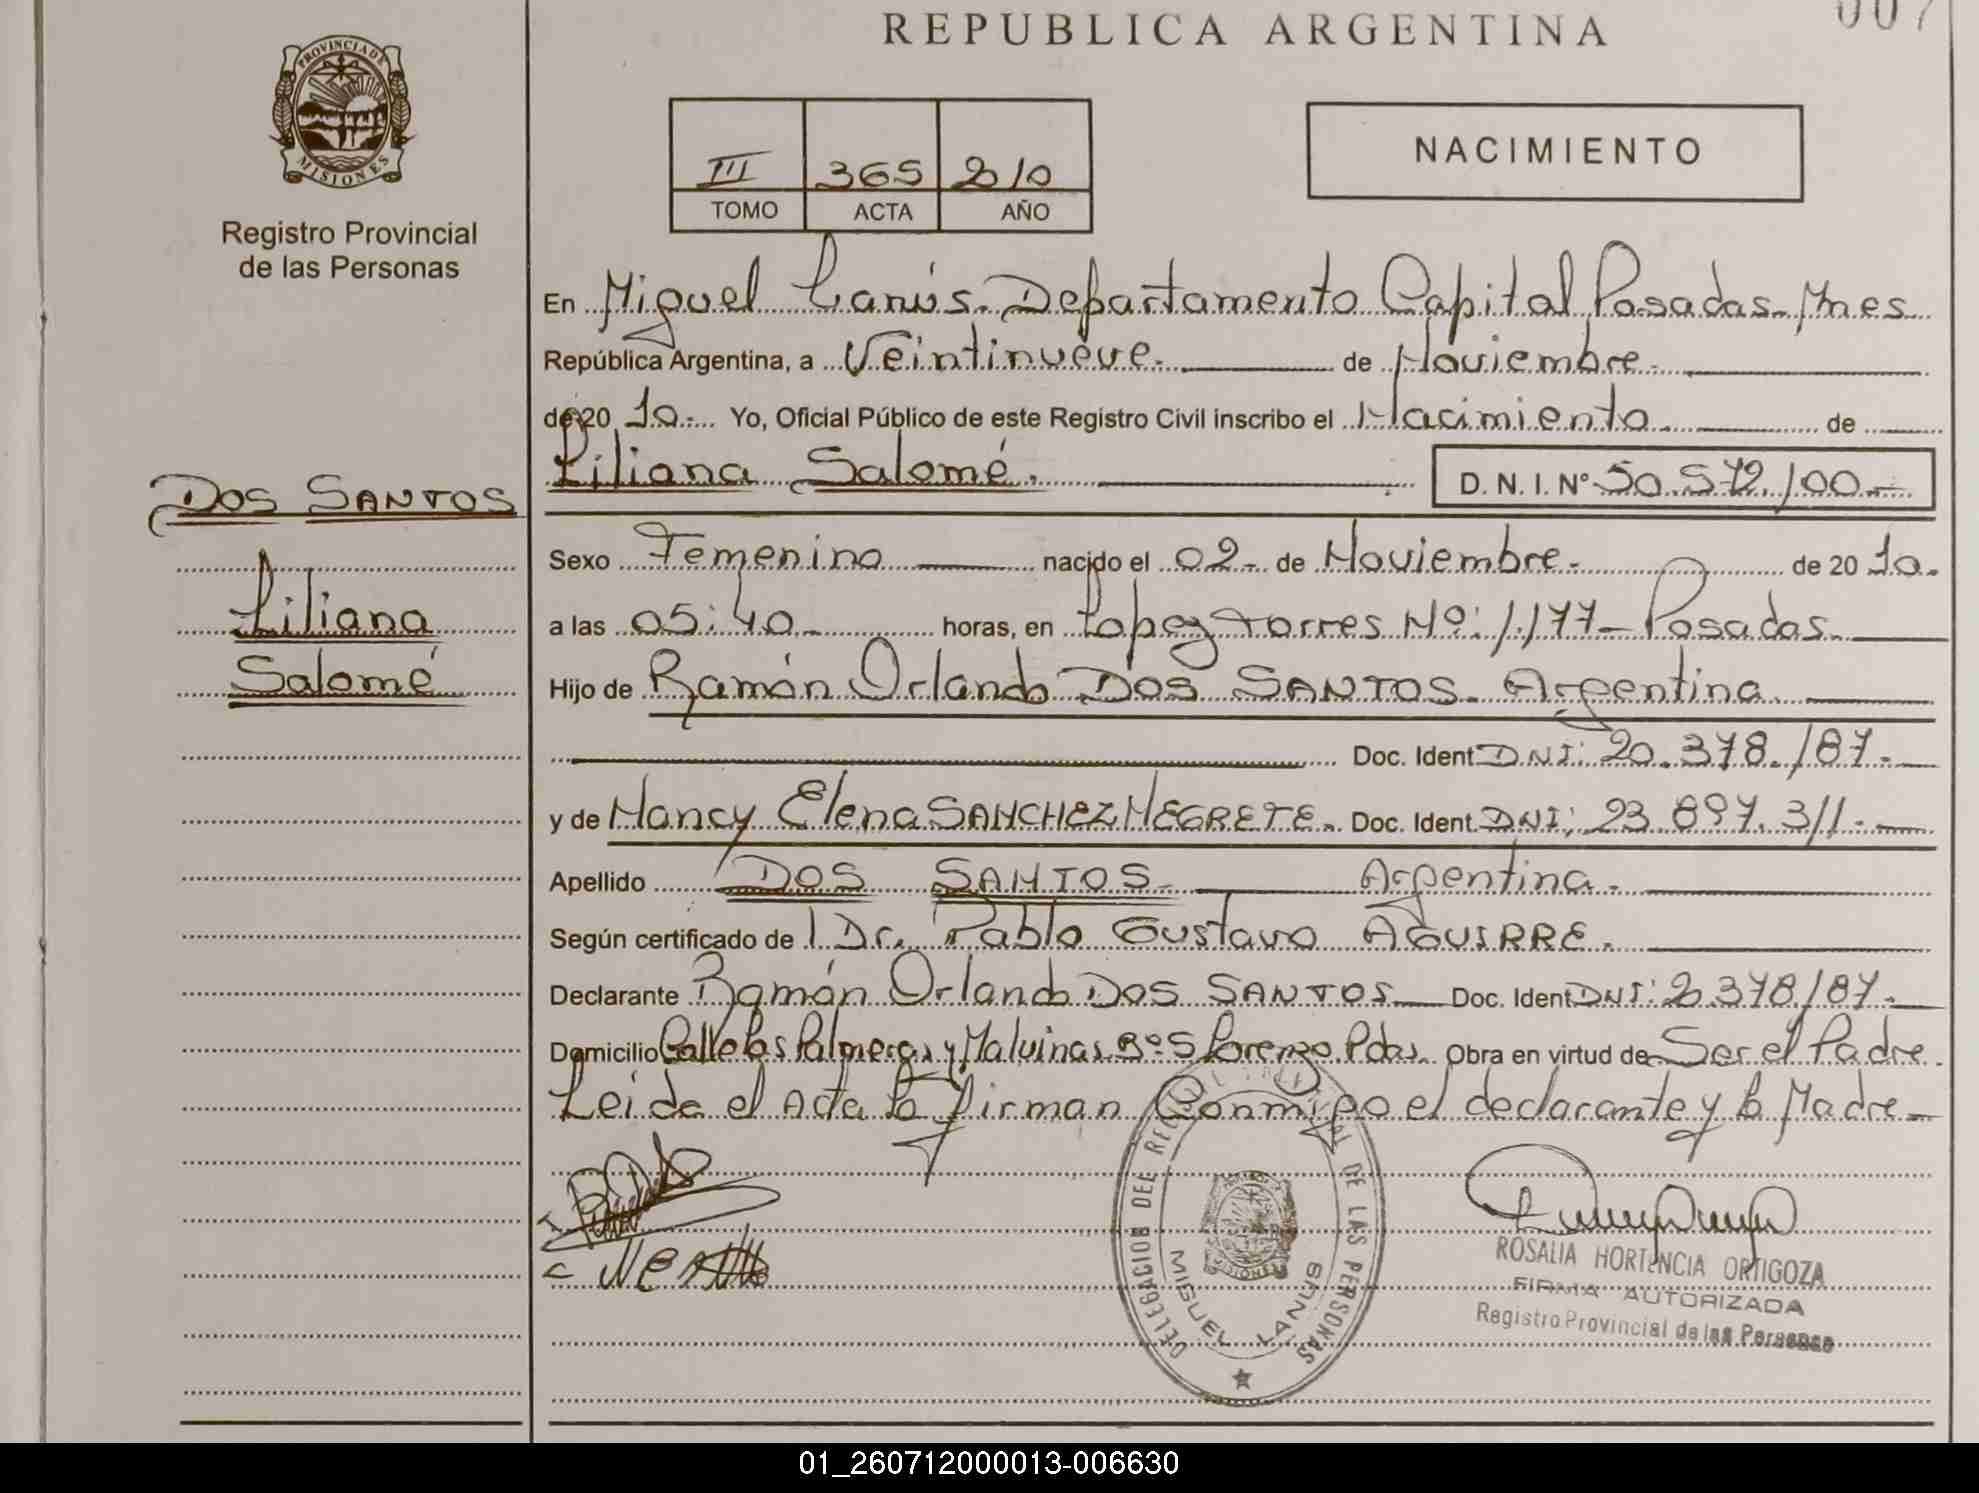 REPUBLICA ARGENTINA
007
PROVINCIA DE
MISIONES
Registro Provincial
de las Personas
III 365 2010
TOMO ACTA AÑO
NACIMIENTO
En Miguel Lanús. Departamento Capital Posadas Mnes
República Argentina, a Veintinueve. de Noviembre.
de 20 10. Yo, Oficial Público de este Registro Civil inscribo el Nacimiento. de
Liliana Salomé. D. N. I. Nº 50.572.100.-
DOS SANTOS
Liliana
Salomé
Sexo Femenino nacido el 02- de Noviembre. de 20 10.
a las 05:40 horas, en Lopez Torres Nº: 1.177- Posadas.
Hijo de Ramón Orlando DOS SANTOS. Argentina.
Doc. Ident DNI: 20.378.187.-
y de Nancy Elena SANCHEZ NEGRETE. Doc. Ident. DNI: 23.897.311.-
Apellido DOS SANTOS Argentina.
Según certificado de Dr. Pablo Gustavo AGUIRRE.
Declarante Ramón Orlando DOS SANTOS Doc. Ident DNI: 20.378.187.-
Domicilio Calle las Palmeras y Malvinas Bº S Lorenzo Pdas. Obra en virtud de Ser el Padre.
Leida el Acta la firman Conmigo el declarante y la Madre-
DELEGACION DEL REGISTRO PROVINCIAL DE LAS PERSONAS
MISIONES
MIGUEL LANUS
ROSALIA HORTENCIA ORTIGOZA
FIRMA AUTORIZADA
Registro Provincial de las Personas
01_260712000013-006630